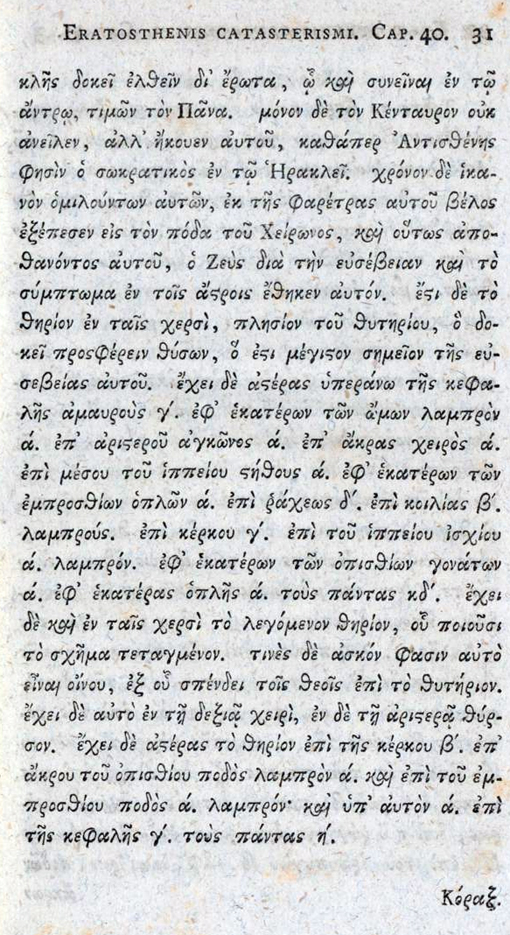 ERATOSTHENIS CATASTERISMI. CAP. 40. 31
κλῆς δοκεῖ ἐλθεῖν δι' ἔρωτα, ᾧ καὶ συνεῖναι ἐν τῷ
ἄντρῳ, τιμῶν τὸν Πᾶνα. μόνον δὲ τὸν Κένταυρον οὐκ
ἀνεῖλεν, ἀλλ' ἤκουεν αὐτοῦ, καθάπερ Ἀντισθένης
φησὶν ὁ σωκρατικὸς ἐν τῷ Ἡρακλεῖ. χρόνον δὲ ἱκα-
νὸν ὁμιλούντων αὐτῶν, ἐκ τῆς φαρέτρας αὐτοῦ βέλος
ἐξέπεσεν εἰς τὸν πόδα τοῦ Χείρωνος, καὶ οὕτως ἀπο-
θανόντος αὐτοῦ, ὁ Ζεὺς διὰ τὴν εὐσέβειαν καὶ τὸ
σύμπτωμα ἐν τοῖς ἄϛροις ἔθηκεν αὐτόν. ἔϛι δὲ τὸ
θηρίον ἐν ταῖς χερσὶ, πλησίον τοῦ θυτηρίου, ὃ δο-
κεῖ προσφέρειν θύσων, ὅ ἐϛι μέγιϛον σημεῖον τῆς εὐ-
σεβείας αὐτοῦ. ἔχει δὲ ἀϛέρας ὑπεράνω τῆς κεφα-
λῆς ἀμαυροὺς γ΄. ἐφ' ἑκατέρων τῶν ὤμων λαμπρὸν
ά. ἐπ' ἀριϛεροῦ ἀγκῶνος ά. ἐπ' ἄκρας χειρὸς ά.
ἐπὶ μέσου τοῦ ἱππείου ϛήθους ά. ἐφ' ἑκατέρων τῶν
ἐμπροσθίων ὁπλῶν ά. ἐπὶ ῥάχεως δ΄. ἐπὶ κοιλίας β΄.
λαμπρούς. ἐπὶ κέρκου γ΄. ἐπὶ τοῦ ἱππείου ἰσχίου
ά. λαμπρόν. ἐφ' ἑκατέρων τῶν ὀπισθίων γονάτων
ά. ἐφ' ἑκατέρας ὁπλῆς ά. τοὺς πάντας κδ΄. ἔχει
δὲ καὶ ἐν ταῖς χερσὶ τὸ λεγόμενον θηρίον, οὗ ποιοῦσι
τὸ σχῆμα τεταγμένον. τινὲς δὲ ἀσκόν φασιν αὐτὸ
εἶναι οἴνου, ἐξ οὗ σπένδει τοῖς θεοῖς ἐπὶ τὸ θυτήριον.
ἔχει δὲ αὐτὸ ἐν τῇ δεξιᾷ χειρὶ, ἐν δὲ τῇ ἀριϛερᾷ θύρ-
σον. ἔχει δὲ ἀϛέρας τὸ θηρίον ἐπὶ τῆς κέρκου β΄. ἐπ'
ἄκρου τοῦ ὀπισθίου ποδὸς λαμπρὸν ά. καὶ ἐπὶ τοῦ ἐμ-
προσθίου ποδὸς ά. λαμπρόν· καὶ ὑπ' αὐτὸν ά. ἐπὶ
τῆς κεφαλῆς γ΄. τοὺς πάντας ή.
Κόραξ.